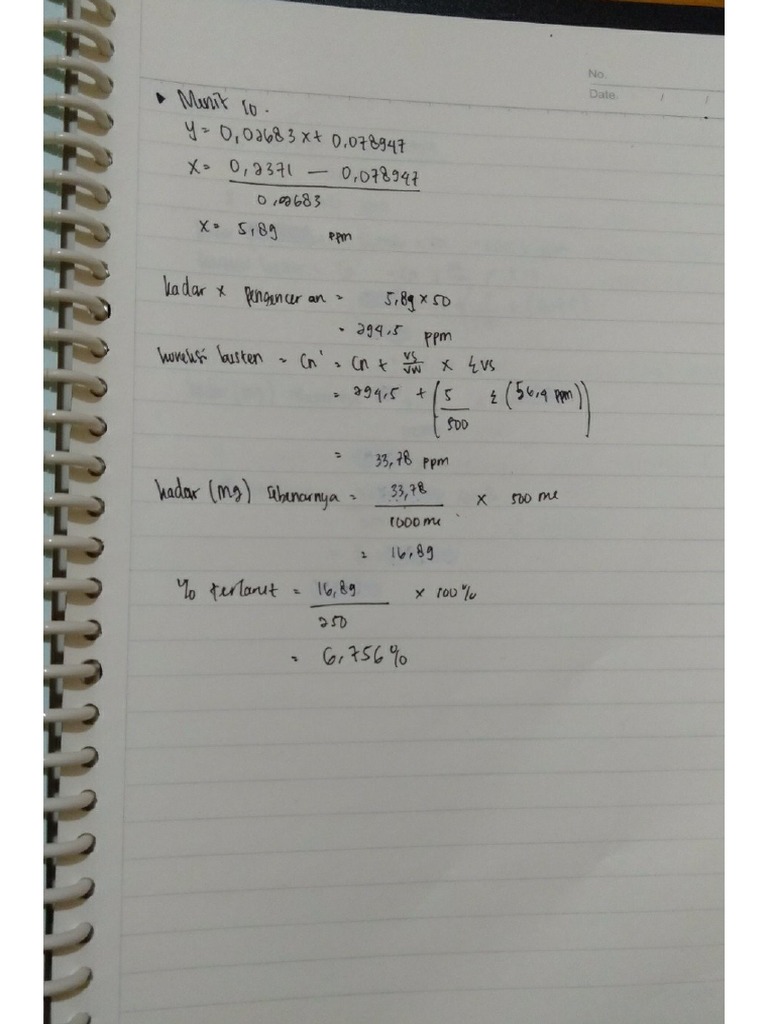 No.
Date. / /
▸ Menit 10.
y = 0,02683 x + 0,078947
x = 0,2371 — 0,078947
0,02683
x = 5,89 ppm
kadar x pengenceran = 5,89 x 50
= 294,5 ppm
koreksi = Cn' = Cn + VS/VM x ΣVS
= 294,5 + (5 Σ (56,4 ppm))
500
= 33,78 ppm
kadar (mg) sebenarnya = 33,78 x 500 ml
1000 ml
= 16,89
% terlarut = 16,89 x 100%
250
= 6,756 %